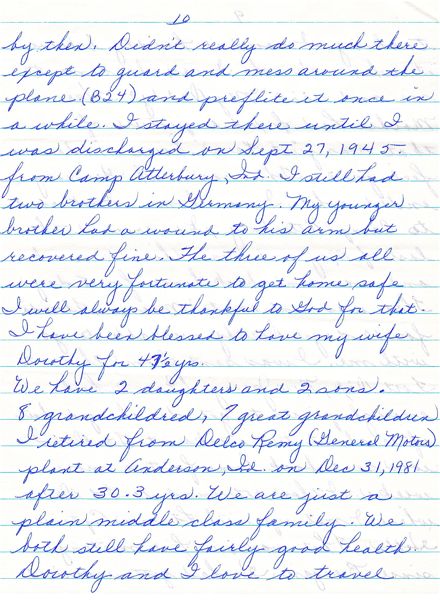 10
by then. Didn't really do much there
except to guard and mess around the
plane (B24) and preflite it once in
a while. I stayed there until I
was discharged on Sept 27, 1945.
from Camp Atterbury, Ind. I still had
two brothers in Germany. My younger
brother had a wound to his arm but
recovered fine. The three of us all
were very fortunate to get home safe
I will always be thankful to God for that.
I have been blessed to have my wife
Dorothy for yrs.
We have 2 daughters and 2 sons.
8 grandchildred, 7 great grandchildren
I retired from Delco Remy (General Motors)
plant at Anderson, on Dec 31, 1981
after 30.3 yrs. We are just a
plain middle class family. We
both still have fairly good health.
Dorothy and I love to travel